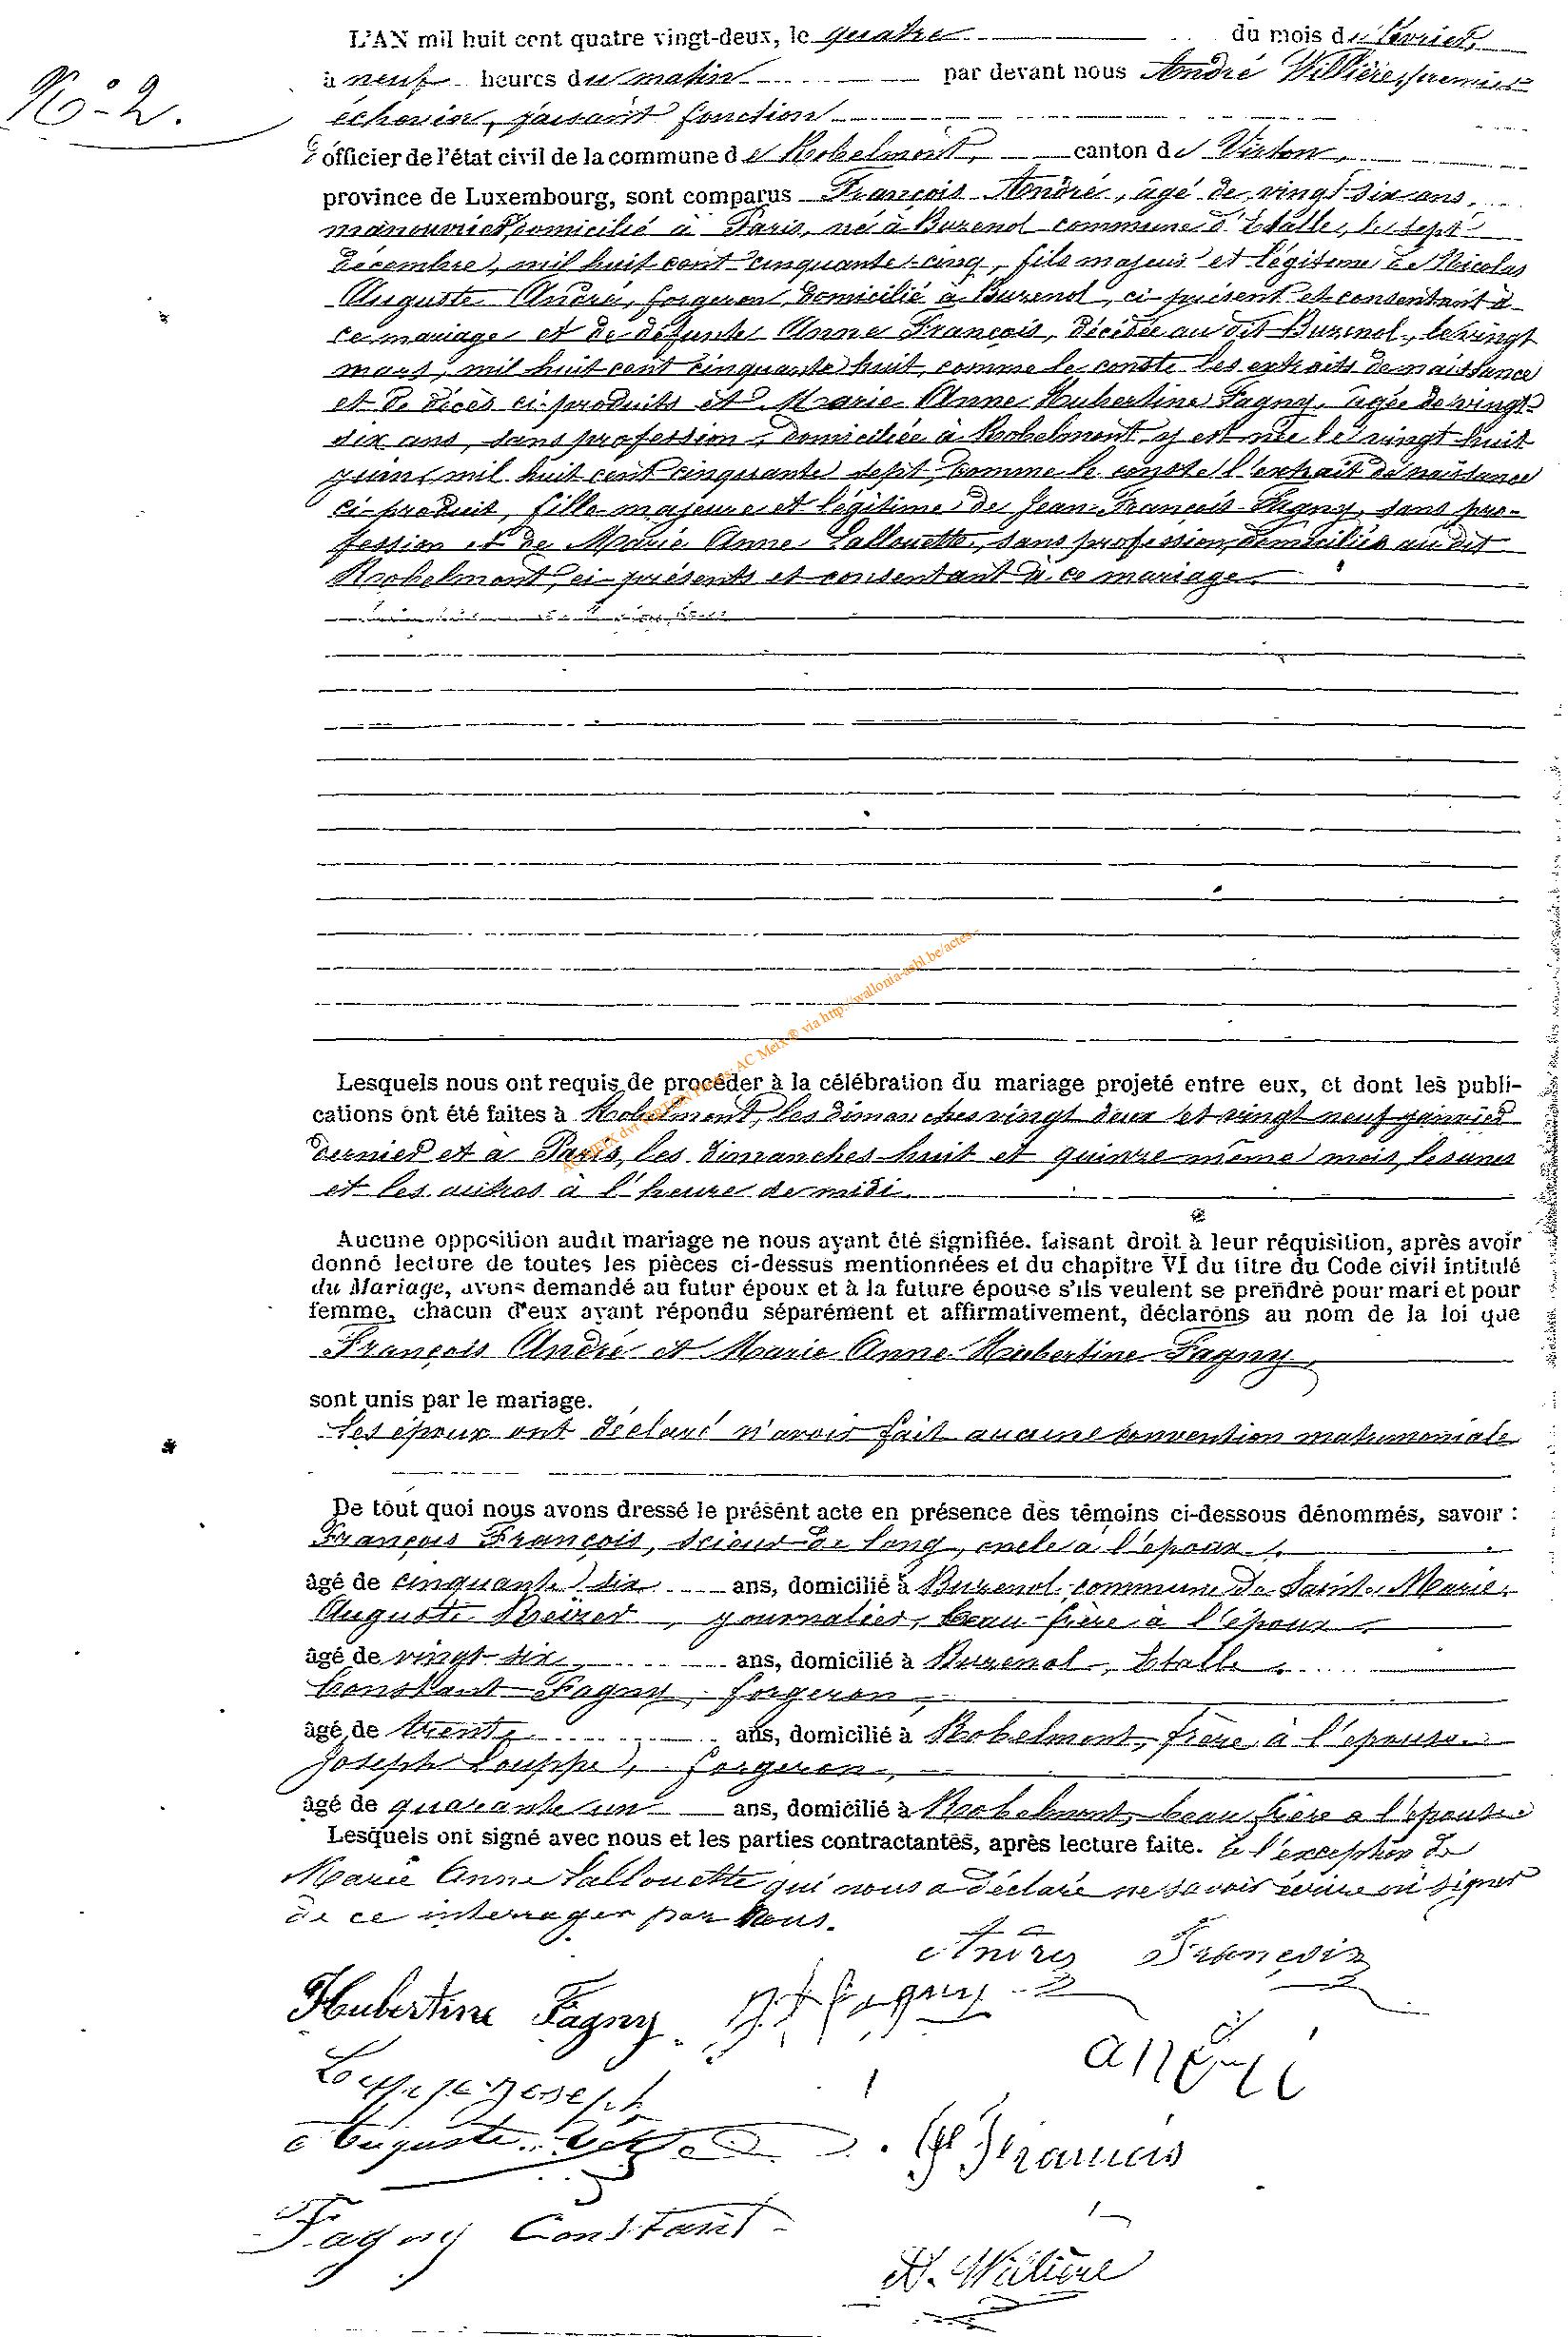 L'AN mil huit cent quatre vingt-deux, le quatre du mois de février,
No 2.
à neuf heures du matin par devant nous André Willière, premier
échevin, faisant fonction
d'officier de l'état civil de la commune de Robelmont, canton de Virton,
province de Luxembourg, sont comparus François André, âgé de vingt-six ans,
manouvrier, domicilié à Paris, né à Buzenol commune d'Etalle, le sept
décembre, mil huit cent cinquante-cinq, fils majeur et légitime de Nicolas
Auguste André, forgeron, domicilié à Buzenol, ci-présent et consentant à
ce mariage et de défunte Anne François, décédée au dit Buzenol, le vingt
mars, mil huit cent cinquante huit, comme le conste les extraits de naissance
et de décès ci-produits et Marie Anne Hubertine Fagny, âgée de vingt-
six ans, sans profession, domiciliée à Robelmont, y est née le vingt huit
juin, mil huit cent cinquante sept, comme le conste l'extrait de naissance
ci-produit, fille majeure et légitime de Jean François Fagny, sans pro-
fession et de Marie Anne Lallouette, sans profession, domiciliés au dit
Robelmont, ci-présents et consentant à ce mariage.
Lesquels nous ont requis de procéder à la célébration du mariage projeté entre eux, et dont les publi-
cations ont été faites à Robelmont, les dimanches vingt deux et vingt neuf janvier
dernier et à Paris, les dimanches huit et quinze même mois, les unes
et les autres à l'heure de midi.
Aucune opposition audit mariage ne nous ayant été signifiée. faisant droit à leur réquisition, après avoir
donné lecture de toutes les pièces ci-dessus mentionnées et du chapitre VI du titre du Code civil intitulé
du Mariage, avons demandé au futur époux et à la future épouse s'ils veulent se prendre pour mari et pour
femme, chacun d'eux ayant répondu séparément et affirmativement, déclarons au nom de la loi que
François André et Marie Anne Hubertine Fagny,
sont unis par le mariage.
Les époux ont déclaré n'avoir fait aucune convention matrimoniale
De tout quoi nous avons dressé le présent acte en présence des témoins ci-dessous dénommés, savoir :
François François, scieur de long, oncle à l'époux,
âgé de cinquante six ans, domicilié à Buzenol, commune de Sainte Marie,
Auguste journalier, beau-frère à l'époux,
âgé de vingt-six ans, domicilié à Buzenol, Etalle,
Constant Fagny, forgeron,
âgé de trente ans, domicilié à Robelmont, frère à l'épouse
Joseph Louppe, forgeron,
âgé de quarante un ans, domicilié à Robelmont, beau frère à l'épouse
Lesquels ont signé avec nous et les parties contractantes, après lecture faite. à l'exception de
Marie Anne Lallouette qui nous a déclaré ne savoir écrire ni signer
de ce interrogée par nous.
André François
Hubertine Fagny J F Fagny
André
Louppe Joseph
Auguste
François
Fagny Constant
A. Willière
via http://wallonia-asbl.be/actes